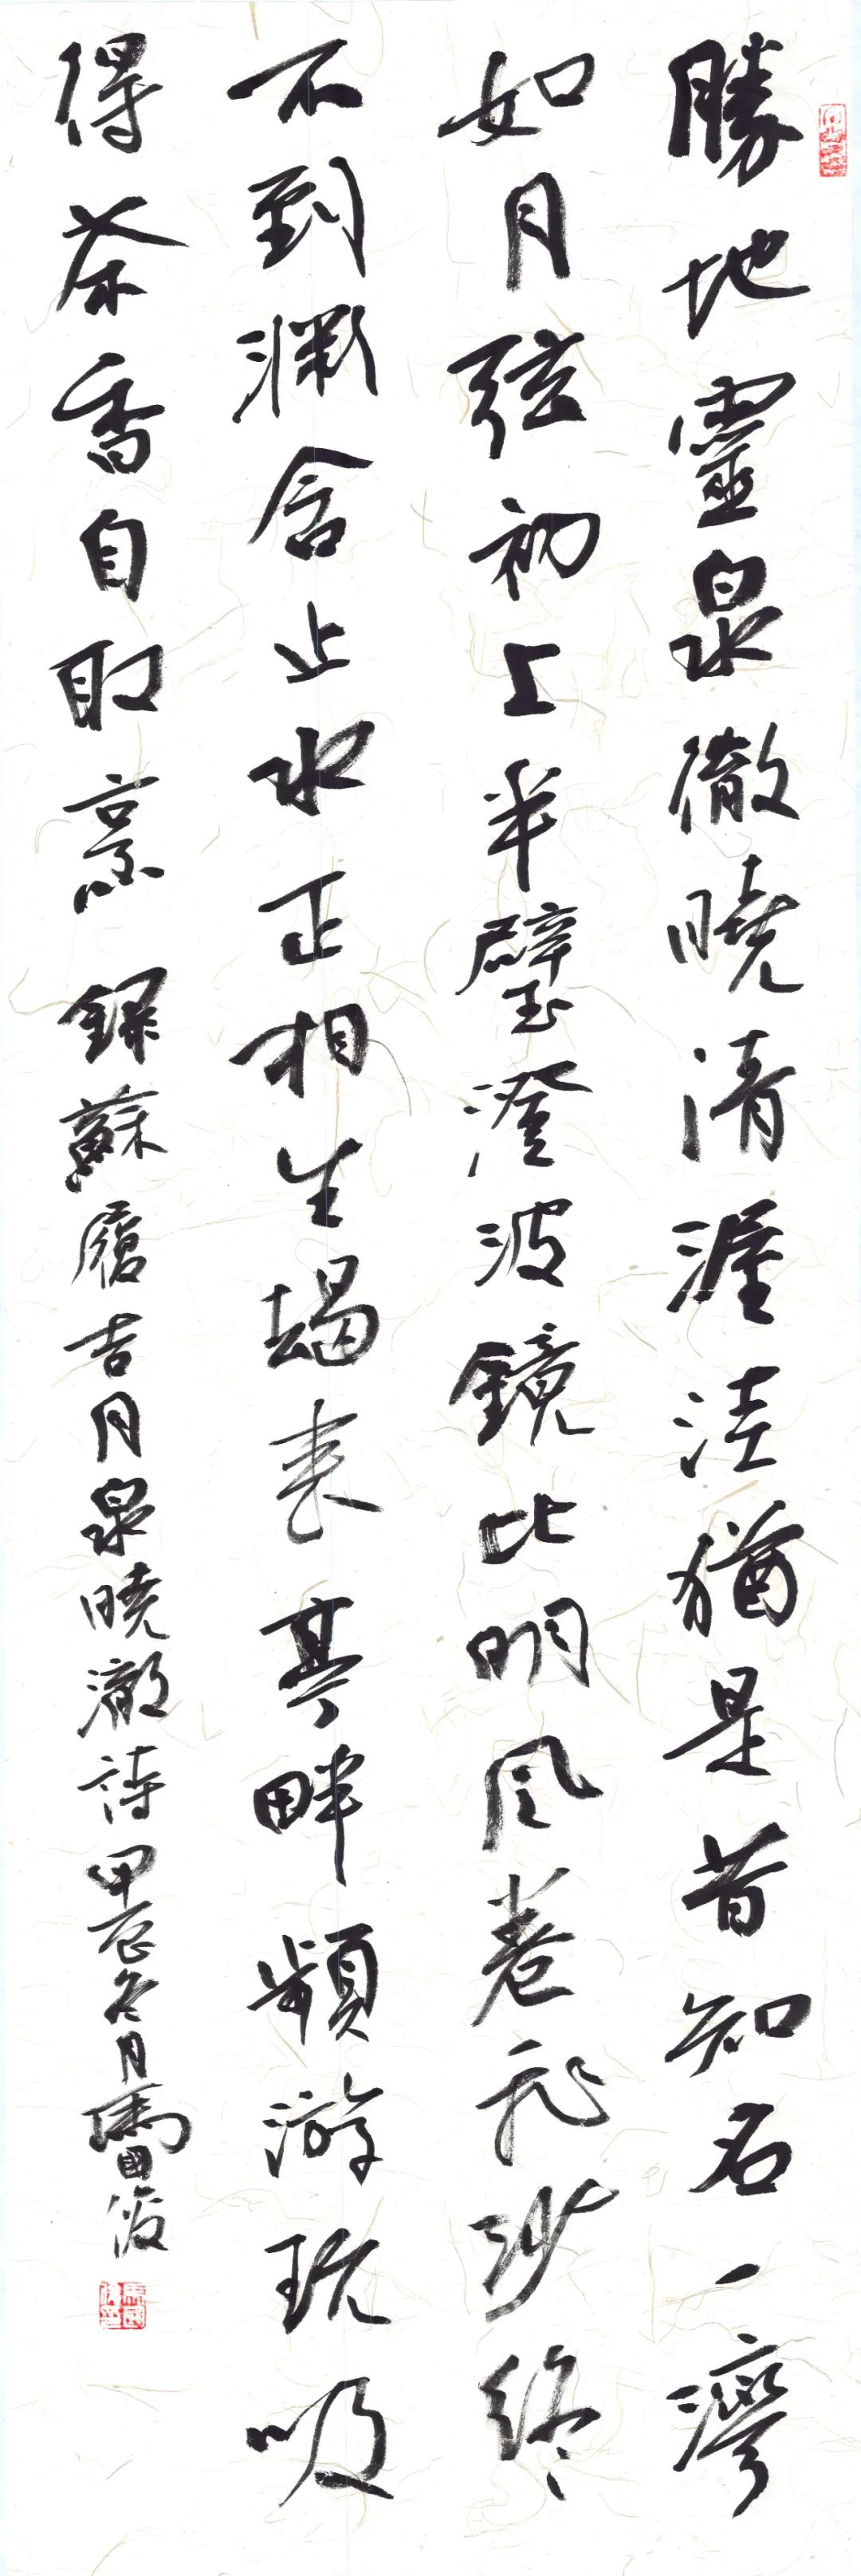 勝地靈泉徹曉清渥洼猶是昔知名一灣
如月弦初上半璧澄波鏡比明風卷飛沙終
不到淵含止水正相生竭來亭畔頻游玩吸
得茶香自取烹 錄蘇履吉月泉曉澈詩 甲辰冬月馬國俊